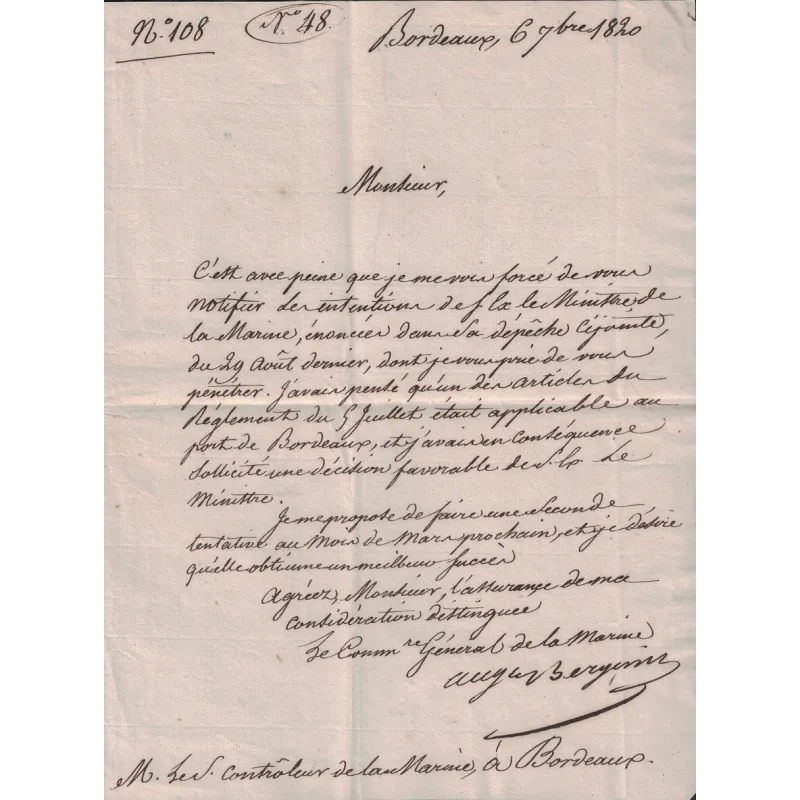 N.° 108
N.° 48.
Bordeaux, 6 7bre 1820
Monsieur,
C'est avec peine que je me vois forcé de vous
notifier les intentions de S. Ex. le Ministre de
la Marine, énoncées dans sa dépêche cijointe,
du 29 Août dernier, dont je vous prie de vous
pénétrer. J'avais pensé qu'un des articles du
Réglement du 5 Juillet était applicable au
port de Bordeaux, et j'avais en conséquence
sollicité une décision favorable de S. Ex. Le
Ministre.
Je me propose de faire une seconde
tentative au Mois de Mars prochain, et je désire
qu'elle obtienne un meilleur succès
Agréez, Monsieur, l'assurance de ma
considération distinguée
Le Comm.re Général de la Marine
Bergevin
M. Le S. Contrôleur de la Marine, à Bordeaux.